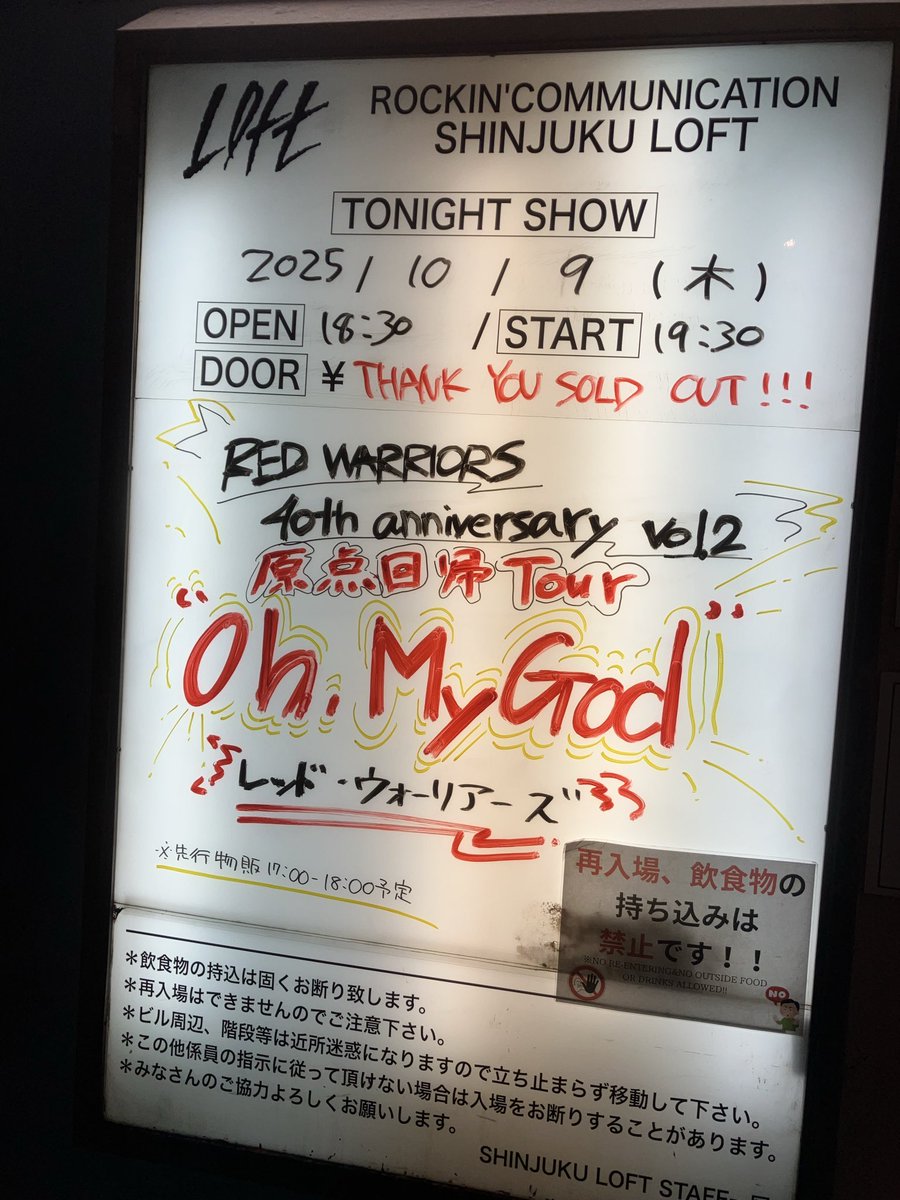 Loft
ROCKIN'COMMUNICATION
SHINJUKU LOFT
TONIGHT SHOW
2025 / 10 / 9 (木)
OPEN 18:30 / START 19:30
DOOR ¥ THANK YOU SOLD OUT!!!
RED WARRIORS
40th anniversary vol.2
原点回帰 Tour
“Oh, My God”
レッド・ウォーリアーズ
※先行物販 17:00-18:00予定
再入場、飲食物の
持ち込みは
禁止です！！
※NO RE-ENTERING&NO OUTSIDE FOOD
OR DRINKS ALLOWED!!
NO
＊飲食物の持込は固くお断り致します。
＊再入場はできませんのでご注意下さい。
＊ビル周辺、階段等は近所迷惑になりますので立ち止まらず移動して下さい。
＊この他係員の指示に従って頂けない場合は入場をお断りすることがあります。
＊みなさんのご協力よろしくお願いします。
SHINJUKU LOFT STAFF